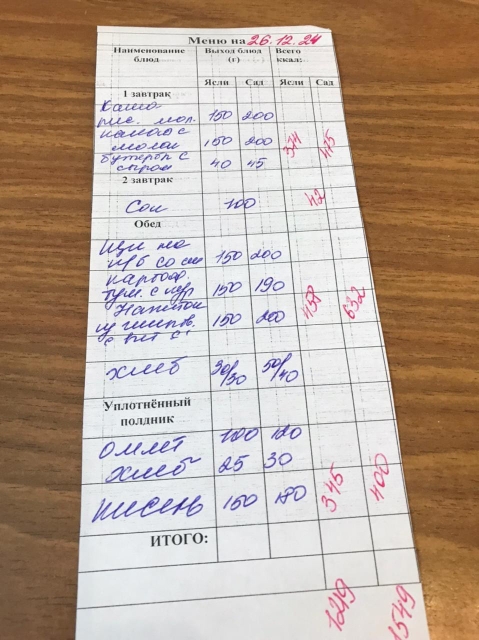 Меню на 26.12.24
Наименование блюд Выход блюд (г) Всего ккал:
Ясли Сад Ясли Сад
1 завтрак
Каша
рис. мол. 150 200
какао с
молок 150 200 374 475
бутерб с
сыром 40 45
2 завтрак
Сок 100 42
Обед
Щи на
м/б со см 150 200
картоф.
туш. с кур 150 190
Напиток
из шипов.
с вит С 150 200 458 632
хлеб 30/30 50/40
Уплотнённый
полдник
омлет 100 120
хлеб 25 30
кисель 150 180 345 400
ИТОГО:
1219 1549